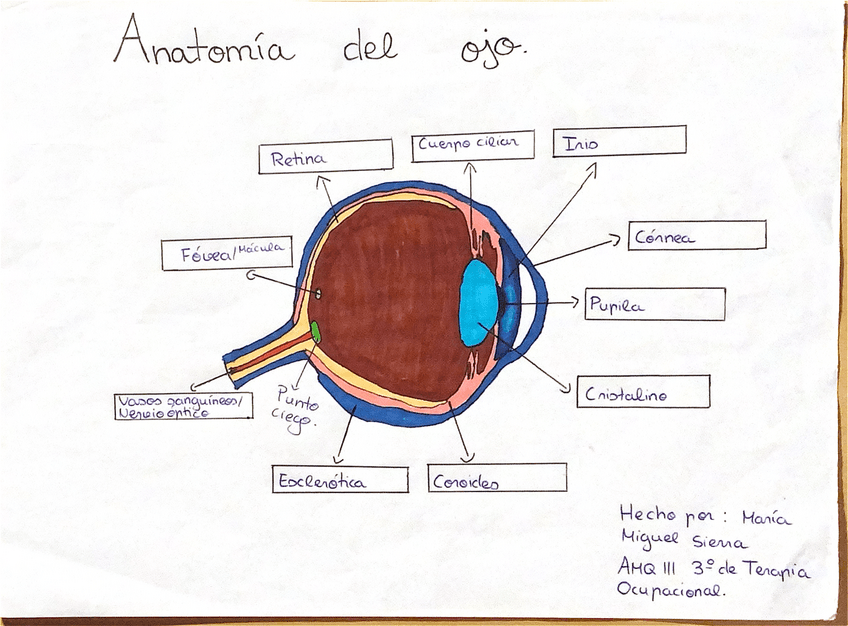 Anatomía del ojo.
Retina
Cuerpo ciliar
Iris
Fóvea/Mácula
Córnea
Pupila
Cristalino
Vasos sanguíneos/
Nervio óptico
Punto
ciego.
Esclerótica
Coroides
Hecho por: María
Miguel Sierra
AMQ III 3º de Terapia
Ocupacional.